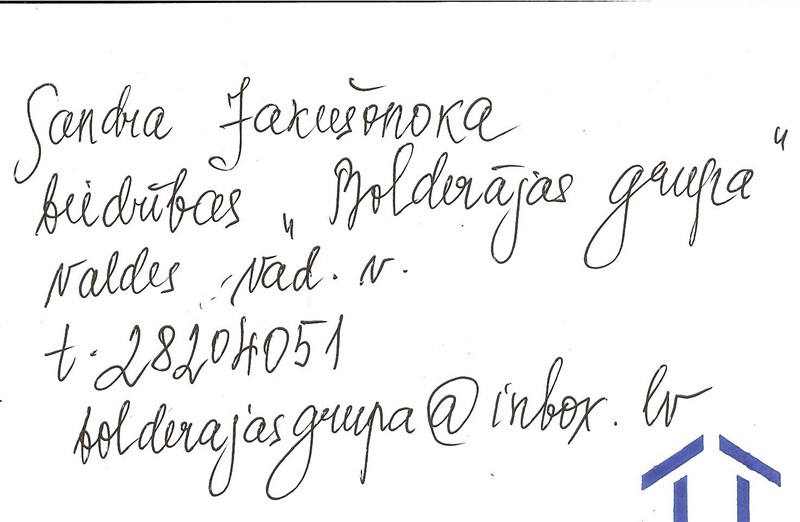 Sandra Jakušonoka
biedrības „Bolderājas grupa"
valdes vad. v.
t. 28204051
bolderajasgrupa@inbox.lv